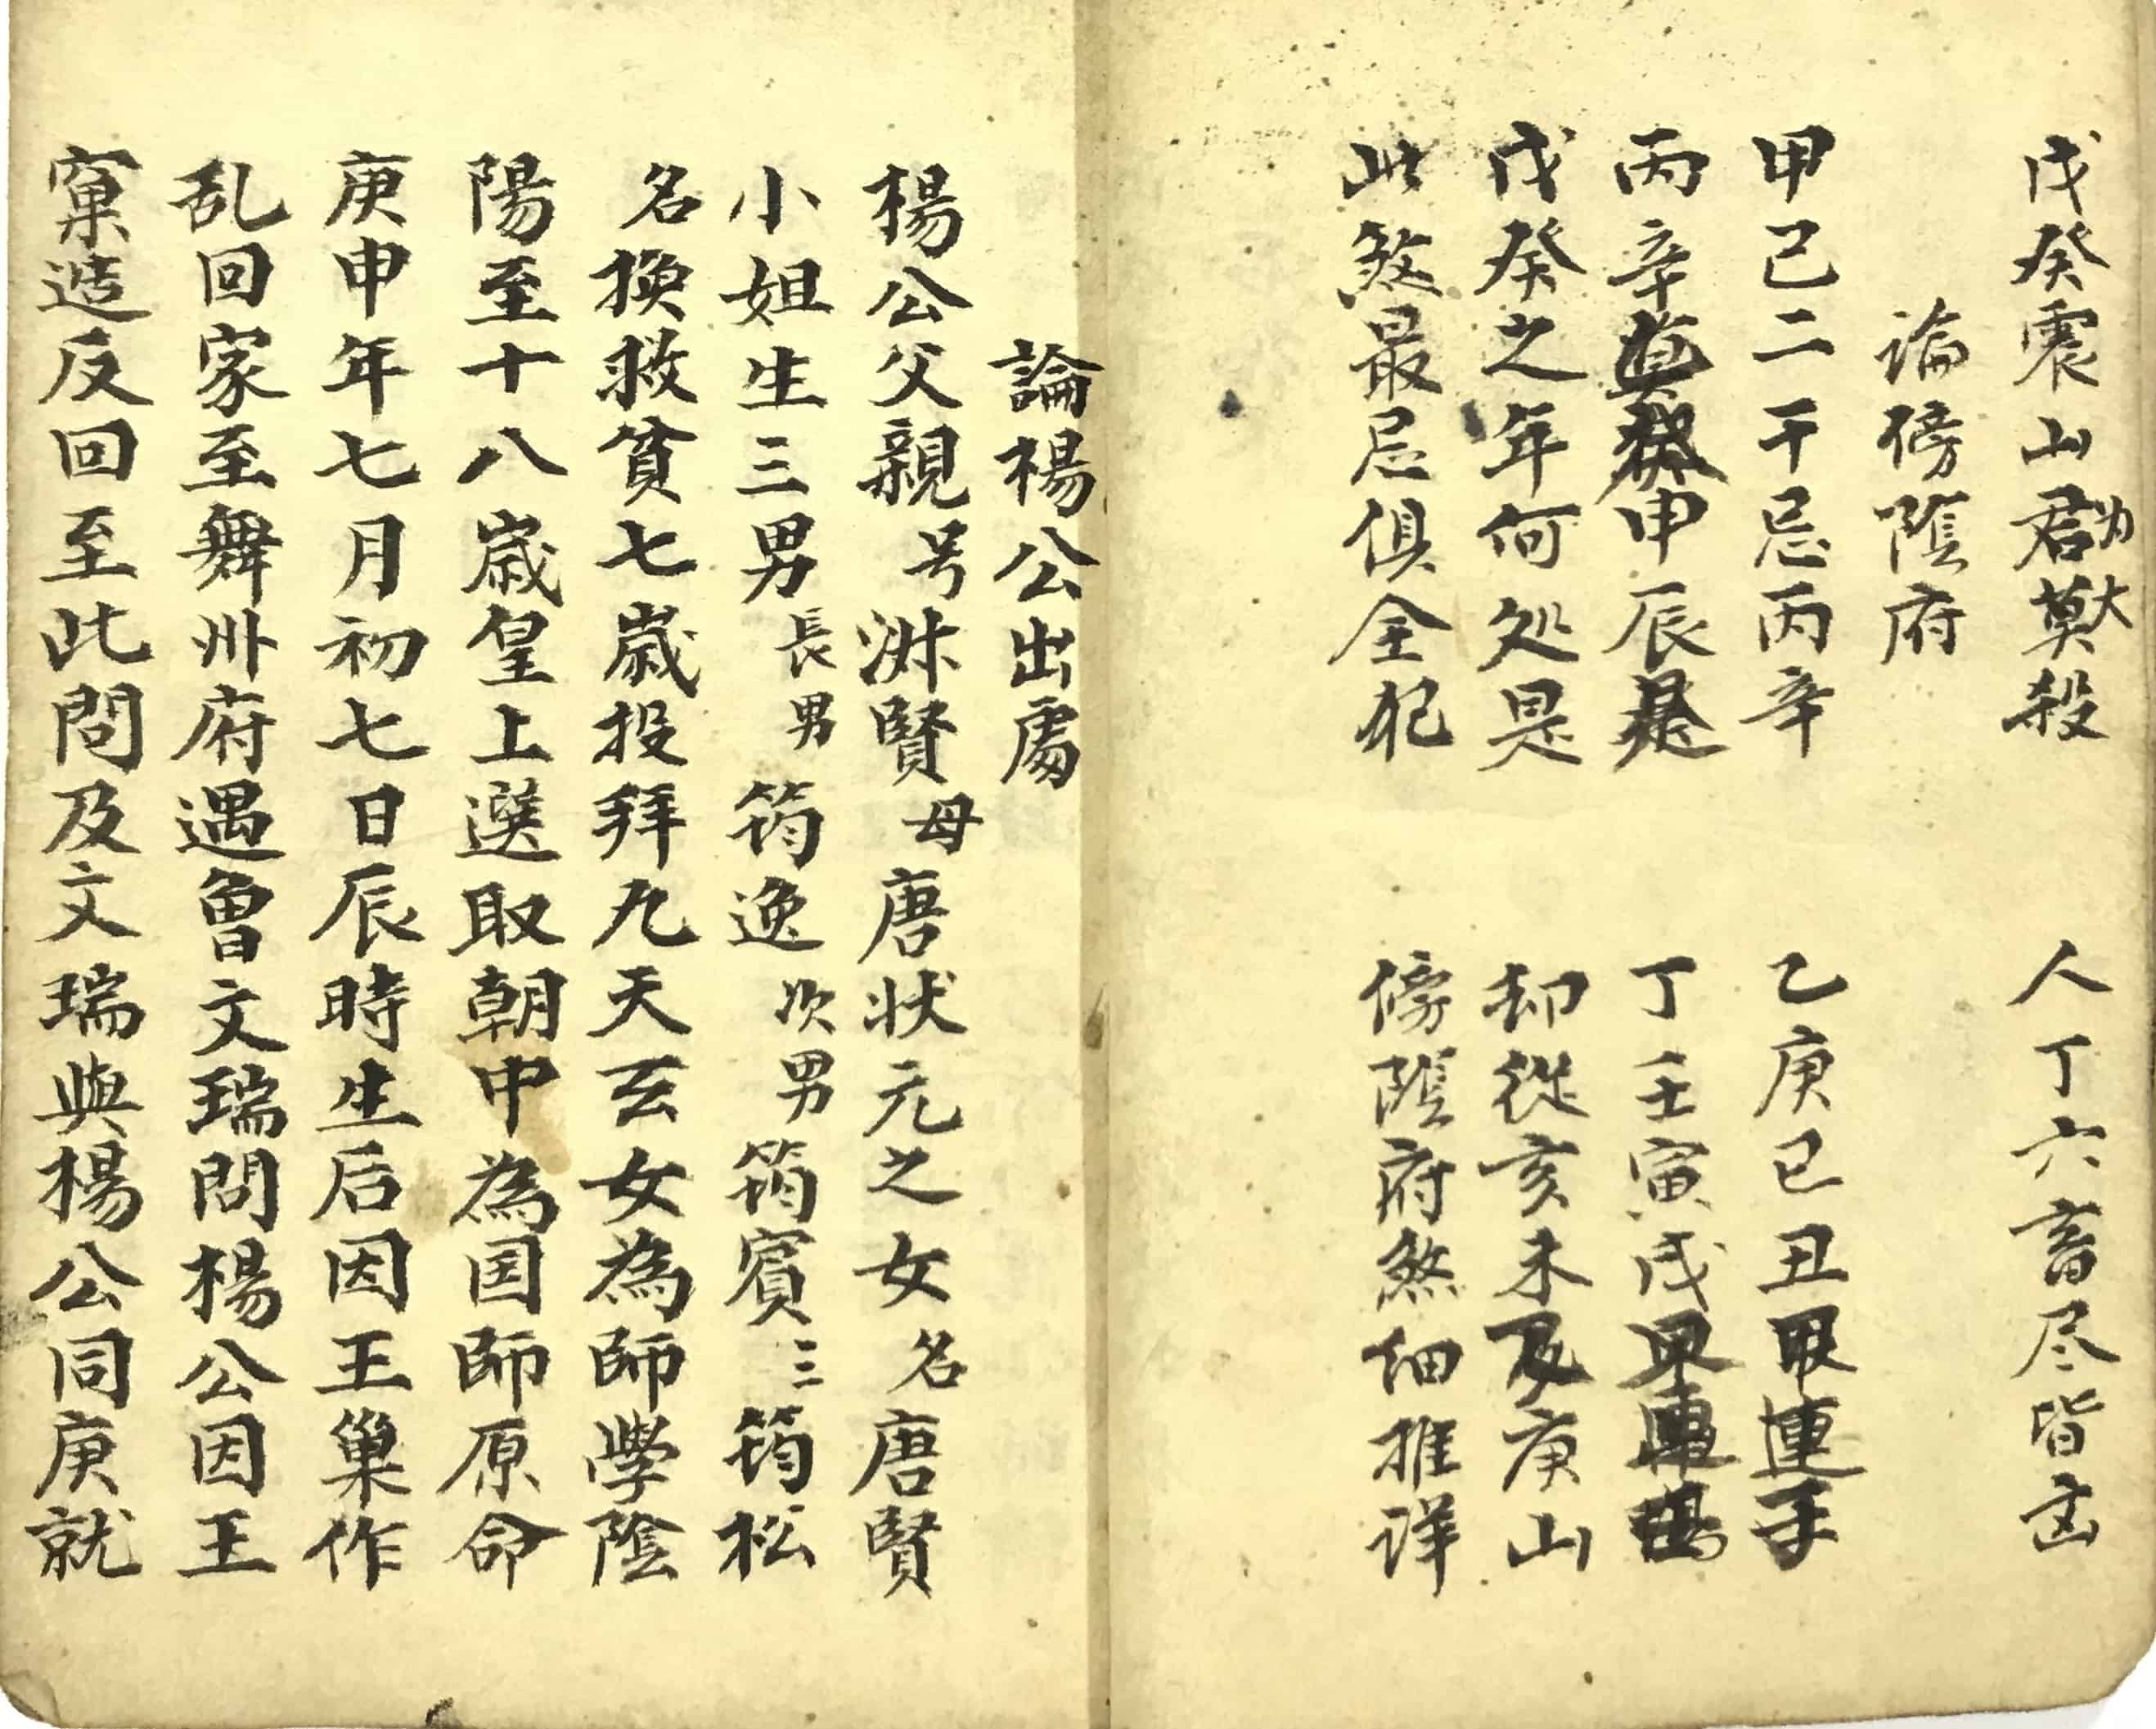 戊癸震山君莫殺 人丁六畜尽皆凶
為大
论傍陰府
甲己二干忌丙辛 乙庚巳丑甲連手
丙辛申辰是 丁壬寅戌
戊癸之年何处是 却從亥未及庚山
此煞最忌俱全犯 傍陰府煞细推详
論楊公出處
楊公父親号淋賢母唐状元之女名唐賢
小姐生三男長男筠逸次男筠賓三筠松
名換救貧七歲投拜九天玄女為師學陰
陽至十八歲皇上選取朝中為国師原命
庚申年七月初七日辰時生后因王巢作
乱回家至舞州府遇曾文瑞問楊公因王
窠造反回至此問及文瑞與楊公同庚就